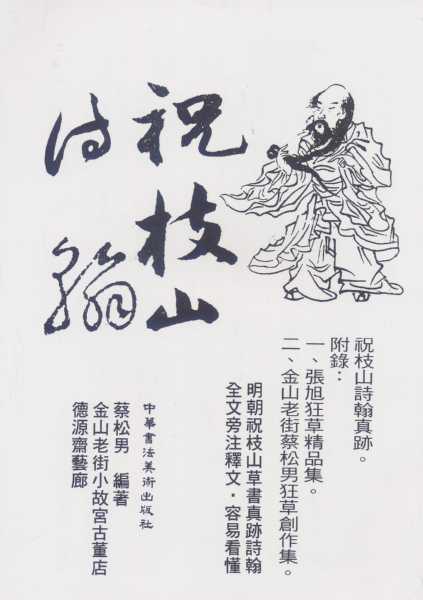 祝枝山
詩翰
祝枝山詩翰真跡。
附錄：
一、張旭狂草精品集。
二、金山老街蔡松男狂草創作集。
明朝祝枝山草書真跡詩翰
全文旁注釋文．容易看懂
中華書法美術出版社
蔡松男 編著
金山老街小故宮古董店
德源齋藝廊